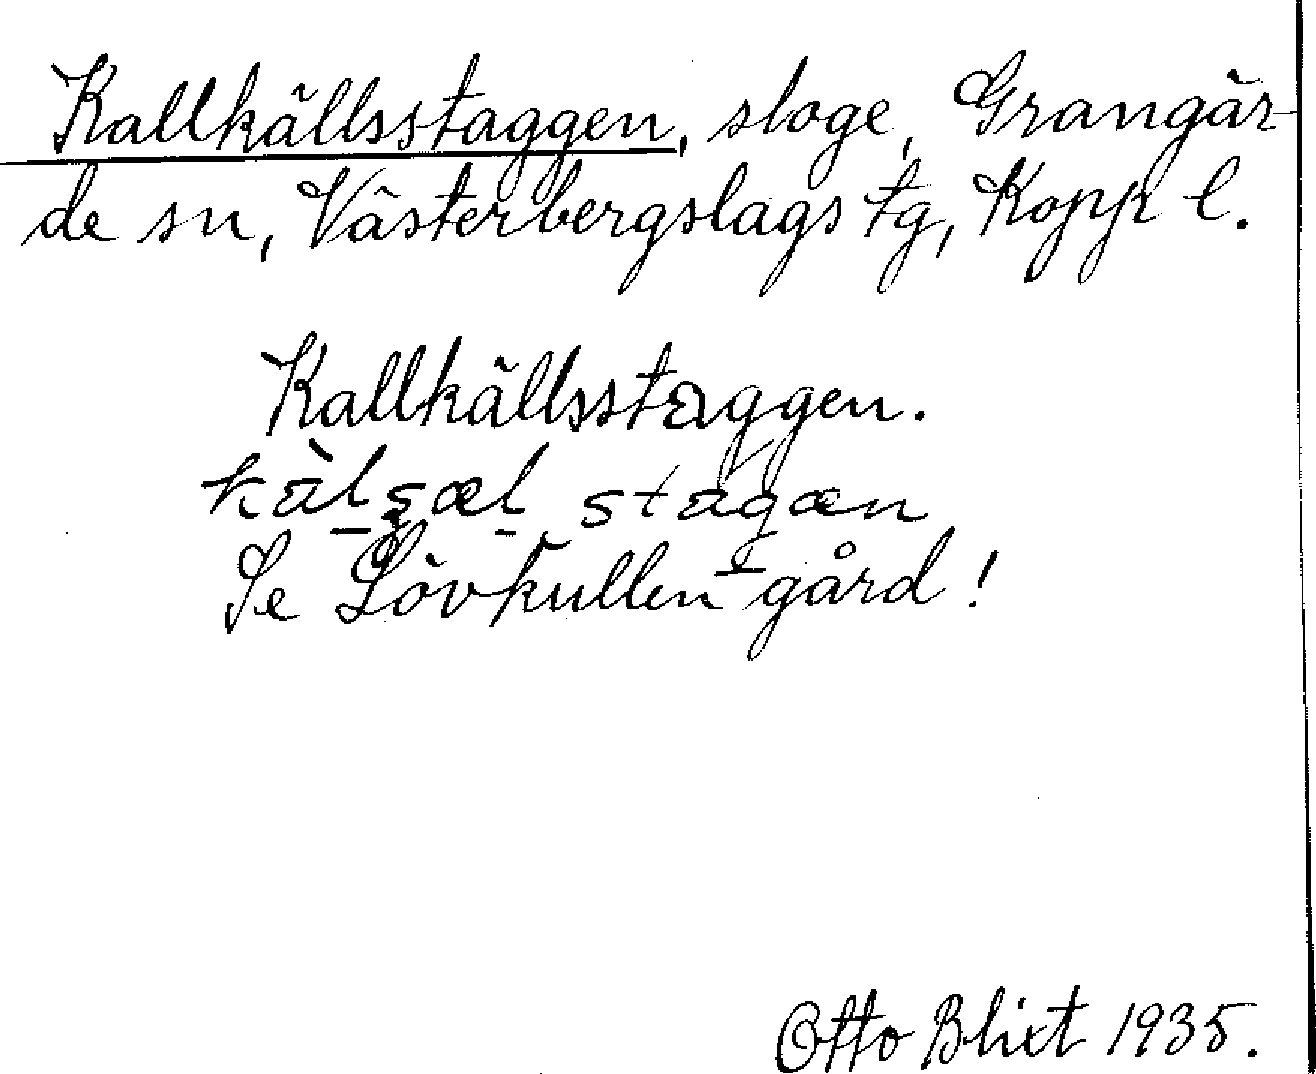 Kallkällsstaggen, sloge, Grangär-
de sn, Västerbergslags tg, Kopp l.
Kallkällsstaggen.
Se Lövkullen gård!
Otto Blixt 1935.